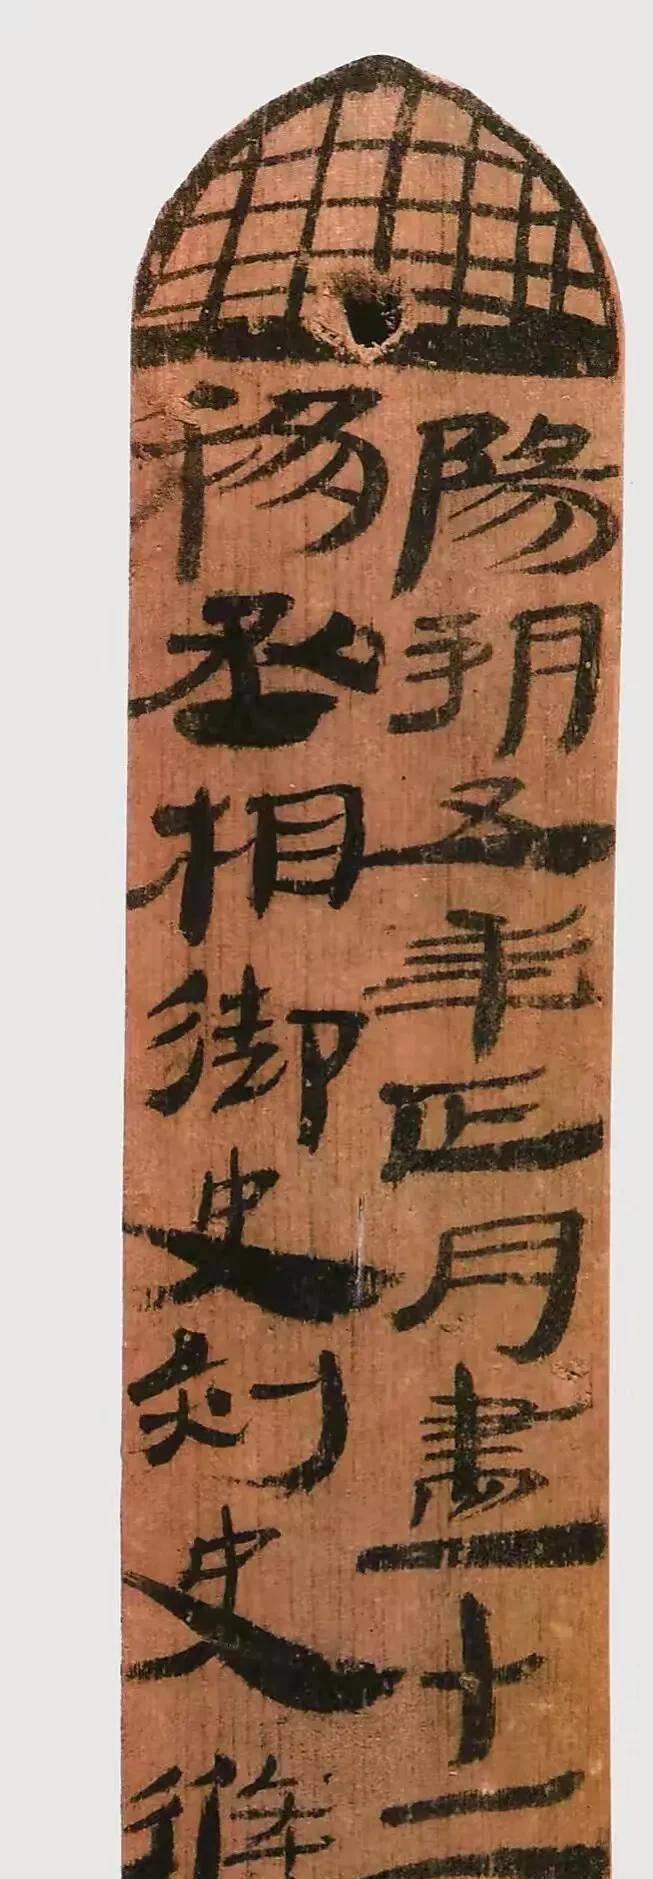 陽朔五年正月盡十二
移丞相御史刺史條